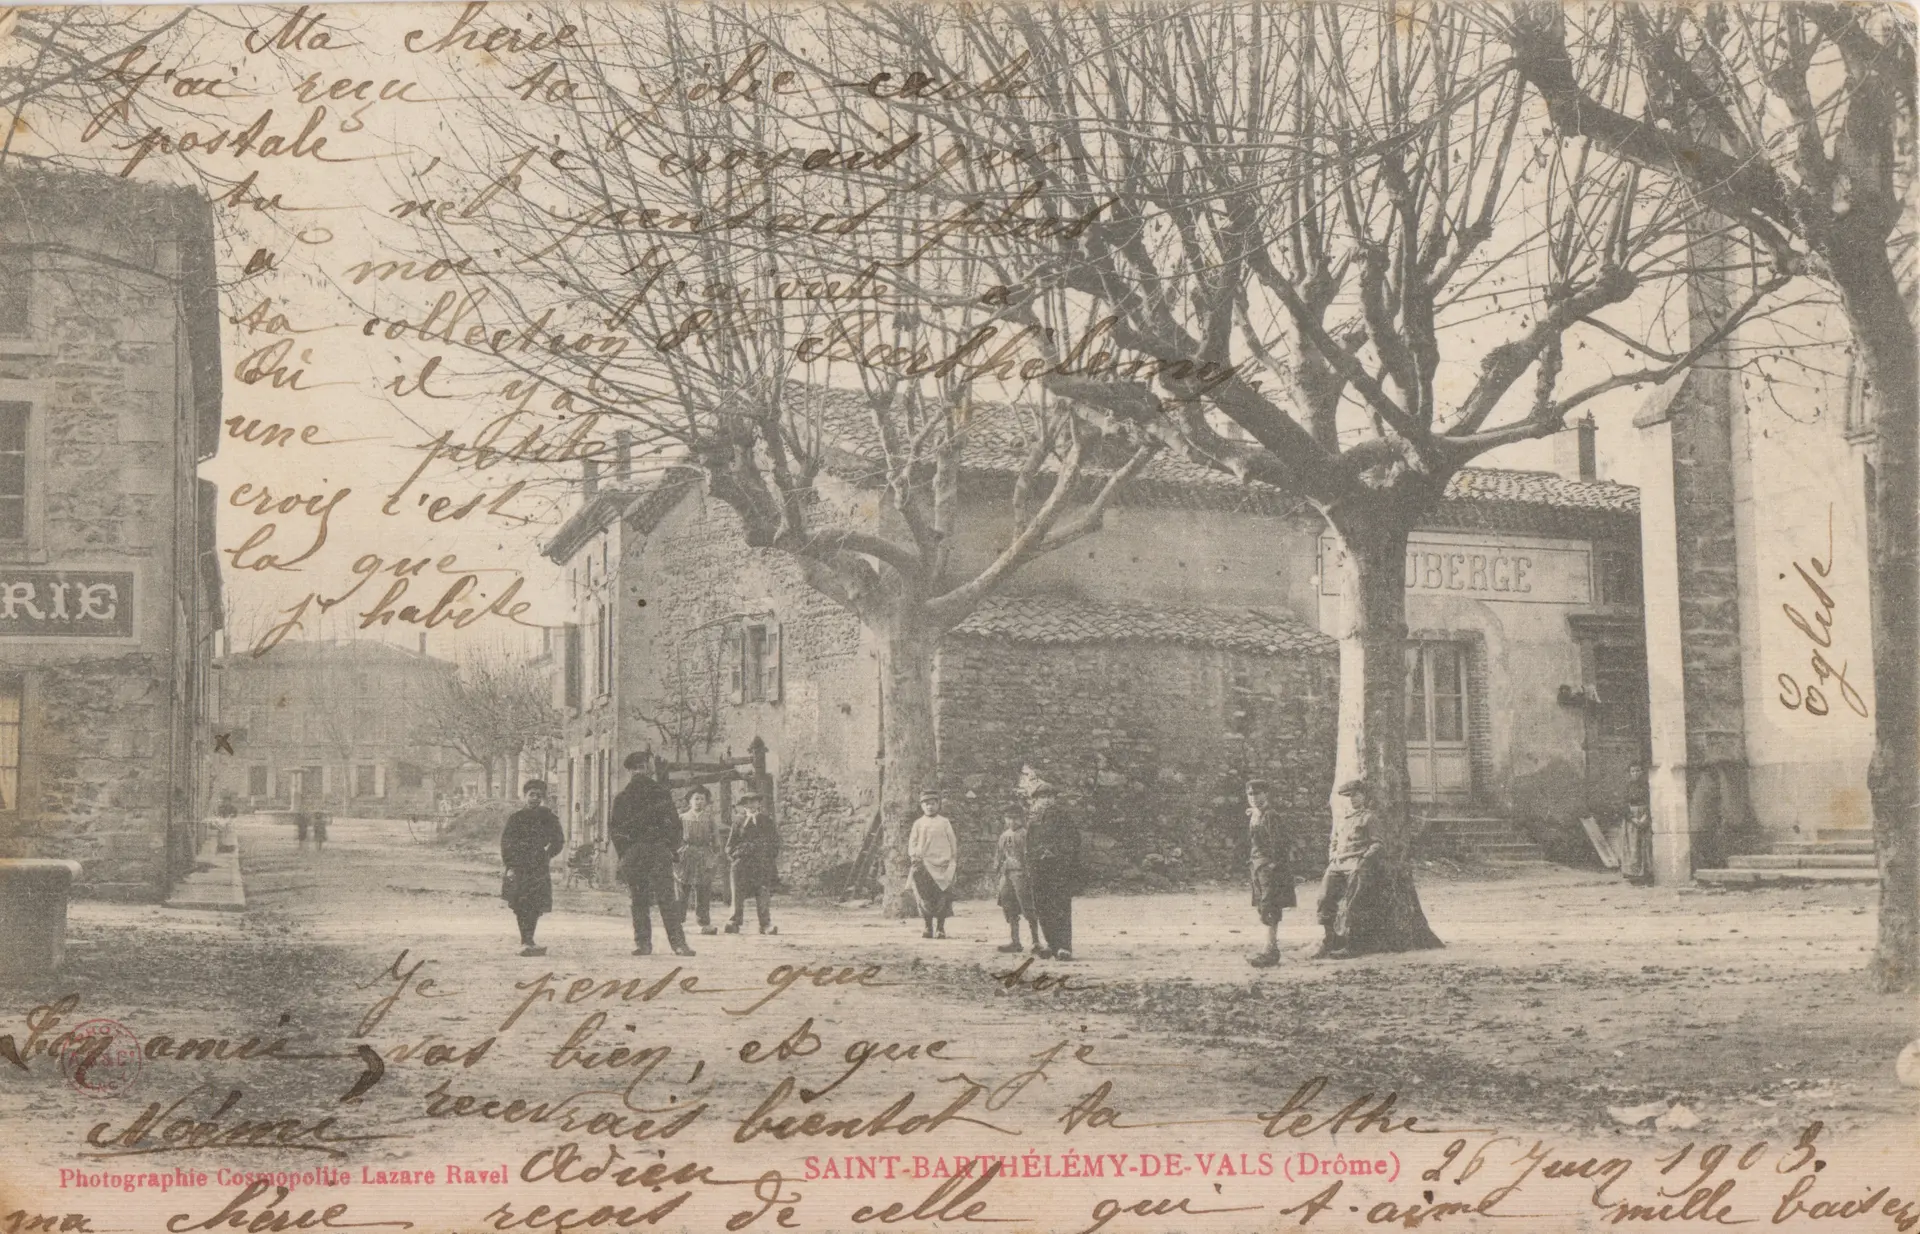 Ma chérie
J'ai reçu ta jolie carte
postale, je croyais que
tu ne pensais plus
à moi. J'ajoute à
ta collection St Barthélemy
Où il y a
une petite
croix c'est
la que
j'habite
RIE
UBERGE
Eglise
x
Je pense que tu
vas bien, et que je
recevrais bientôt ta lettre
Ton amie
Noémi
Photographie Cosmopolite Lazare Ravel
SAINT-BARTHÉLÉMY-DE-VALS (Drôme)
26 Juin 1903.
Adieu
ma chérie reçois de celle qui t'aime mille baisers